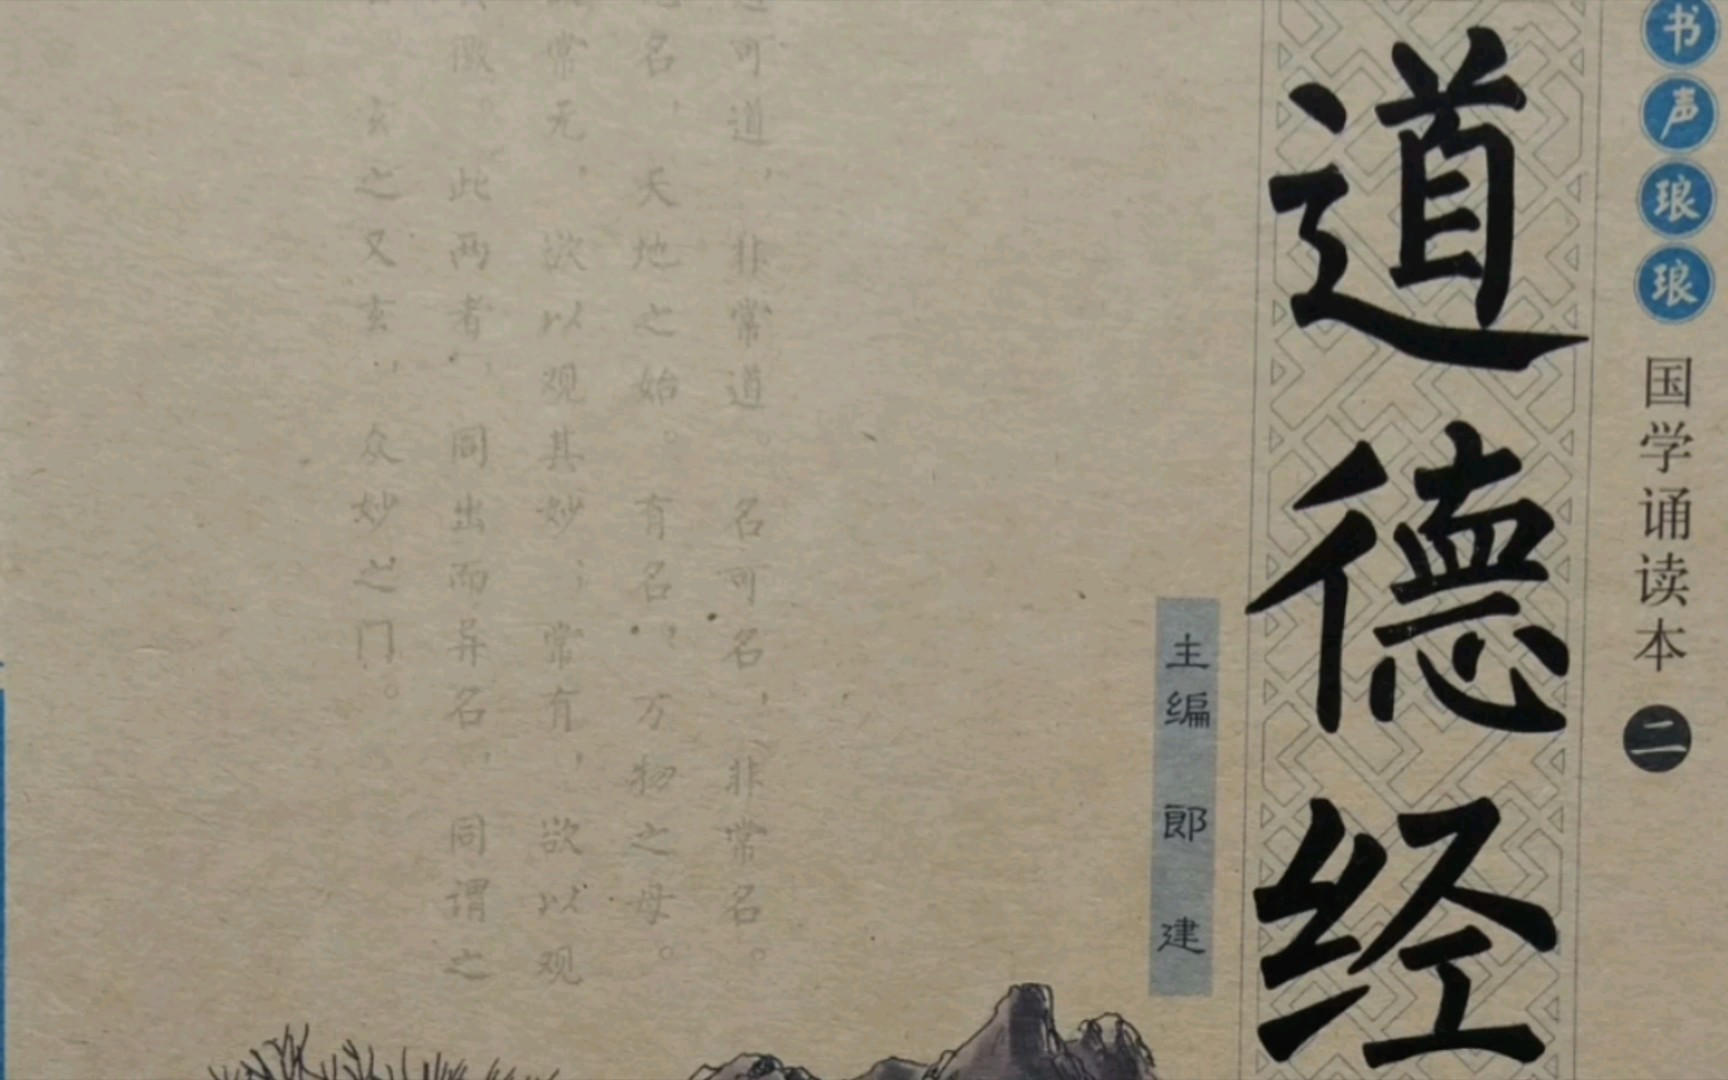 书声琅琅
国学诵读本
二
道德经
主编 郎建
可道，非常道。名可名，非常名。
名，天地之始。有名，万物之母。
常无，欲以观其妙；常有，欲以观
徼。此两者，同出而异名，同谓之
玄之又玄，众妙之门。